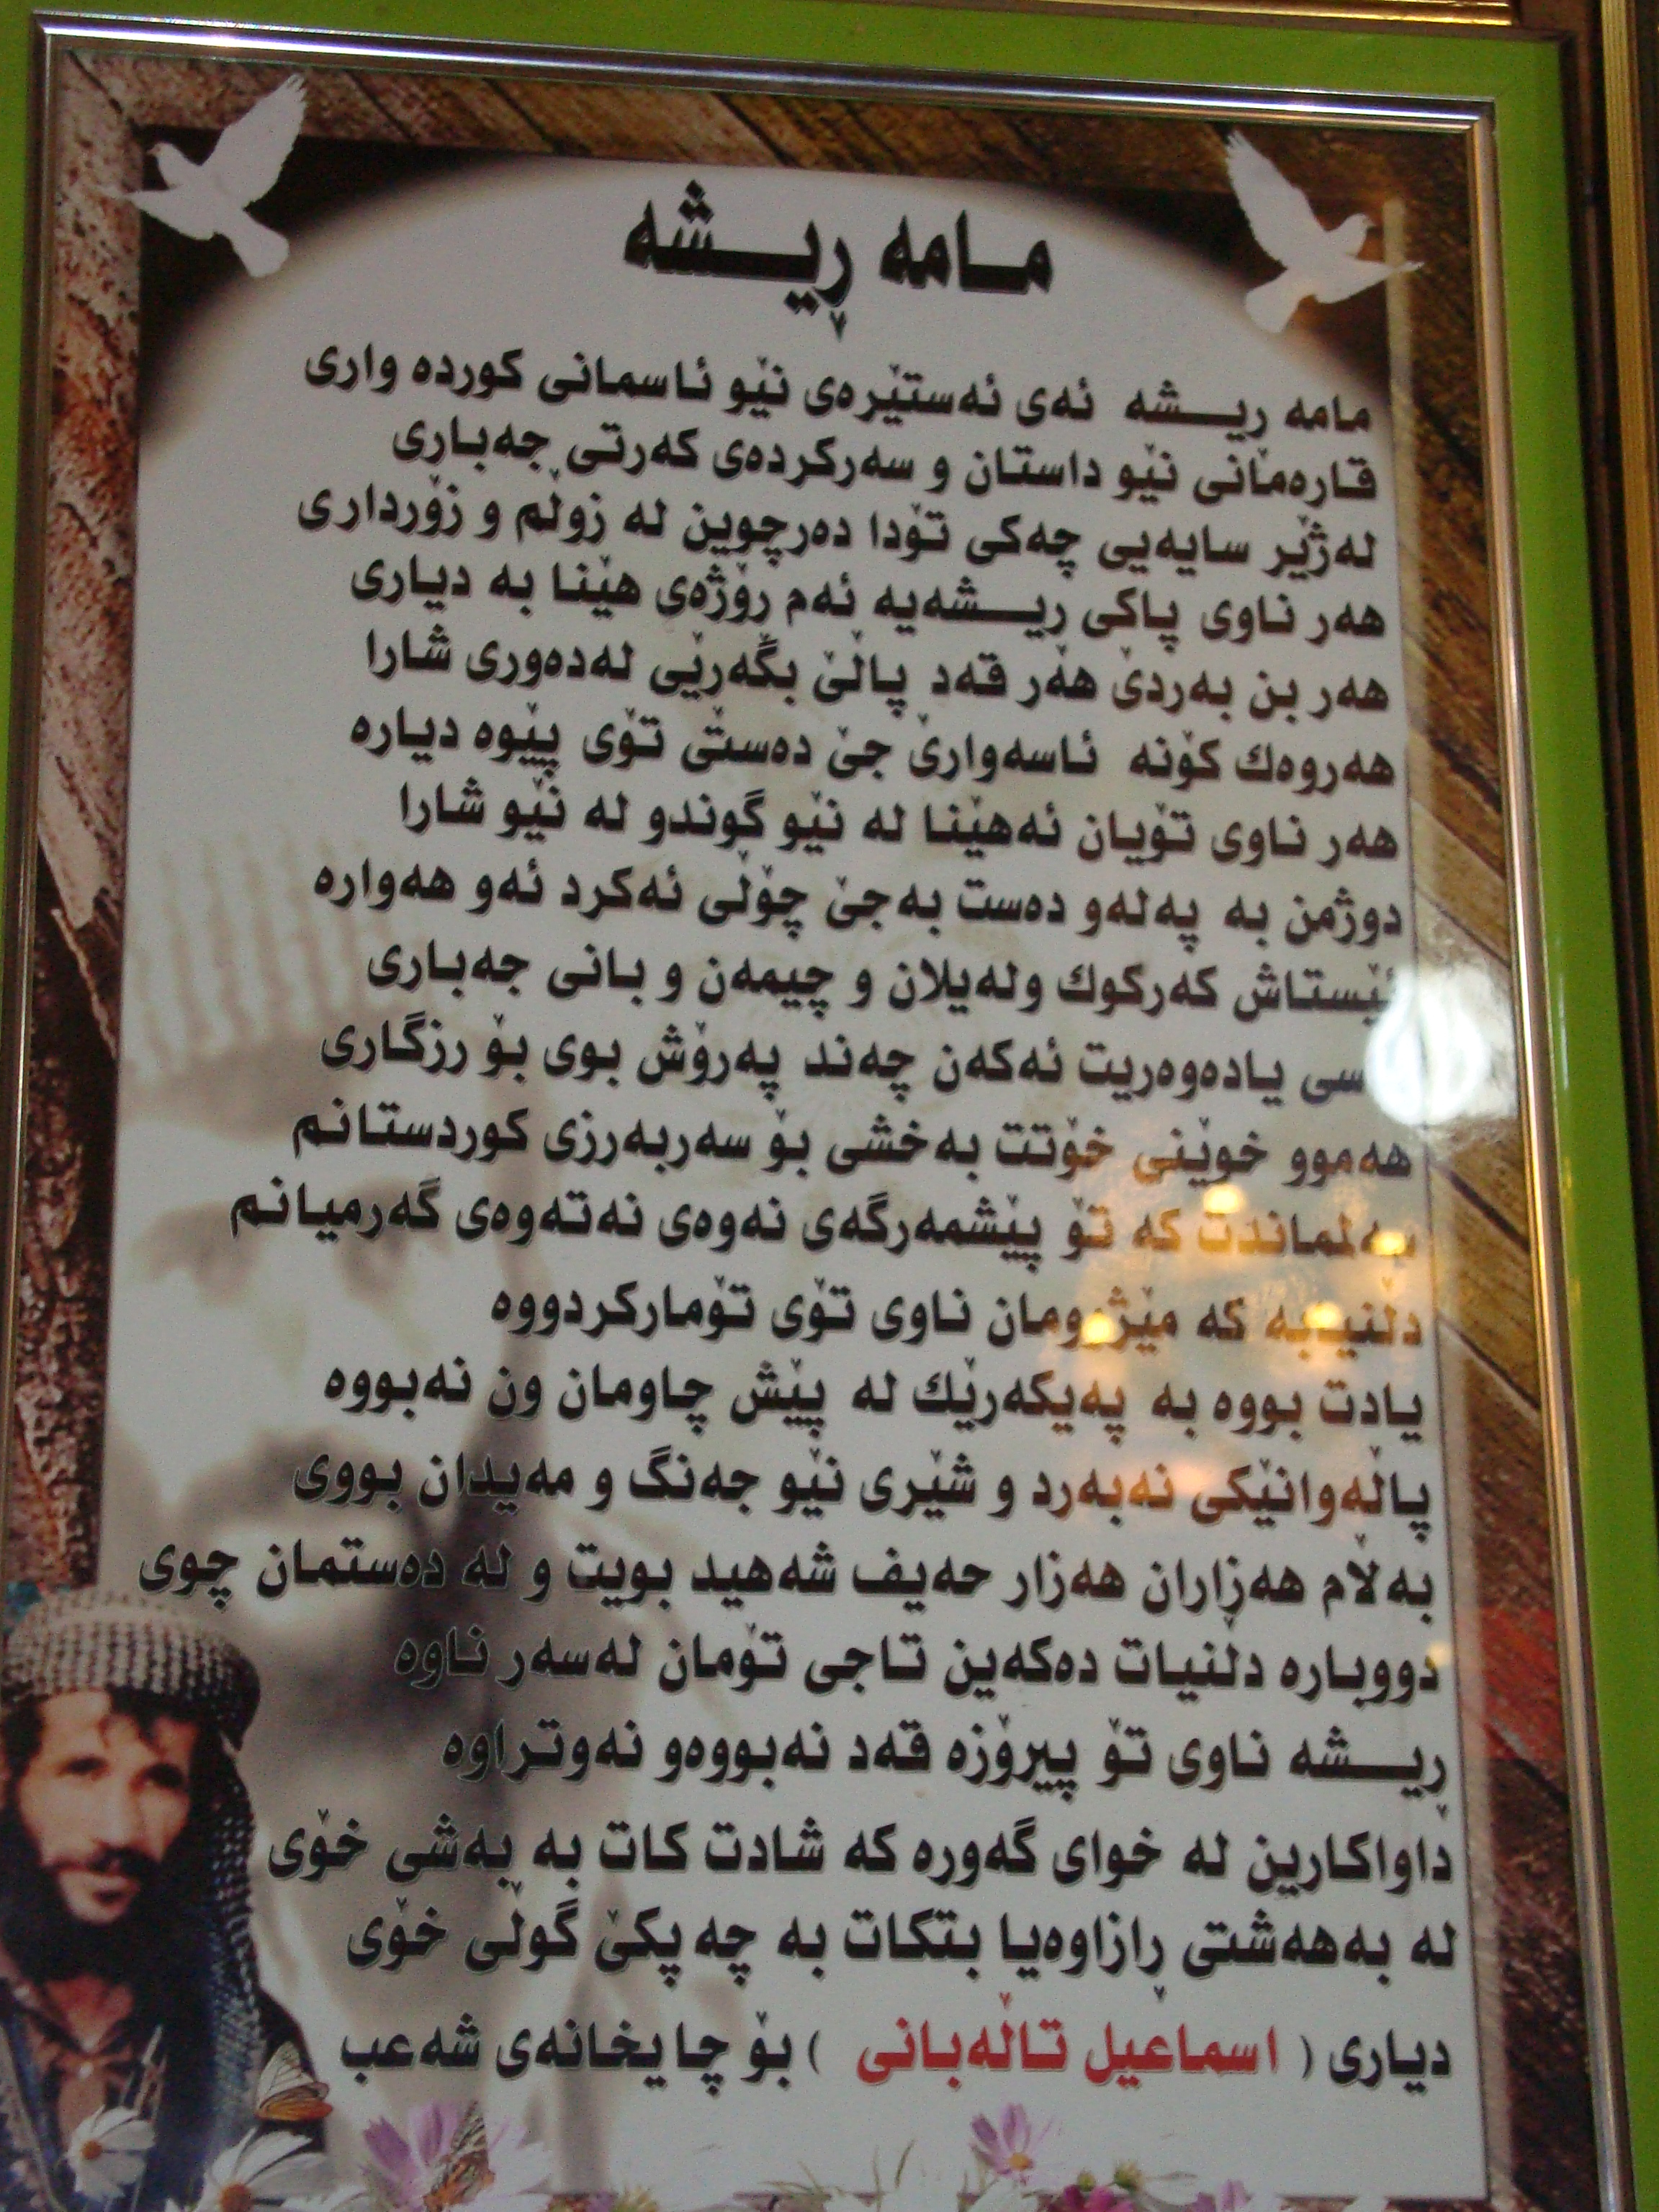 مامە ڕیشە
مامە ڕیشە ئەی ئەستێرەی نێو ئاسمانی کوردە واری
قارەمانی نێو داستان و سەرکردەی کەرتی جەباری
لەژێر سایەیی چەکی تۆدا دەرچوین لە زوڵم و زۆرداری
هەر ناوی پاکی ڕیشەیە ئەم رۆژەی هێنا بە دیاری
هەر بن بەردێ هەر قەد پاڵێ بگەرێی لەدەوری شارا
هەروەك کۆنە ئاسەوارێ جێ دەستی تۆی پێوە دیارە
هەر ناوی تۆیان ئەهێنا لە نێو گوندو لە نێو شارا
دوژمن بە پەلەو دەست بەجێ چۆڵی ئەکرد ئەو هەوارە
ئێستاش کەرکوك ولەیلان و چیمەن و بانی جەباری
یادەوەریت ئەکەن چەند پەرۆش بوی بۆ رزگاری
هەموو خوێنی خۆتت بەخشی بۆ سەربەرزی کوردستانم
کە تۆ پێشمەرگەی نەوەی نەتەوەی گەرمیانم
دڵنیابە کە مێژوومان ناوی تۆی تۆمارکردووە
یادت بووە بە پەیکەرێك لە پێش چاومان ون نەبووە
پاڵەوانێکی نەبەرد و شێری نێو جەنگ و مەیدان بووی
بەڵام هەزاران هەزار حەیف شەهید بویت و لە دەستمان چوی
دووبارە دڵنیات دەکەین تاجی تۆمان لەسەر ناوە
ڕیشە ناوی تۆ پیرۆزە قەد نەبووەو نەوتراوە
داواکارین لە خوای گەورە کە شادت کات بە بەشی خۆی
لە بەهەشتی ڕازاوەیا بتکات بە چەپکێ گوڵی خۆی
دیاری ( اسماعیل تاڵەبانی ) بۆ چایخانەی شەعب